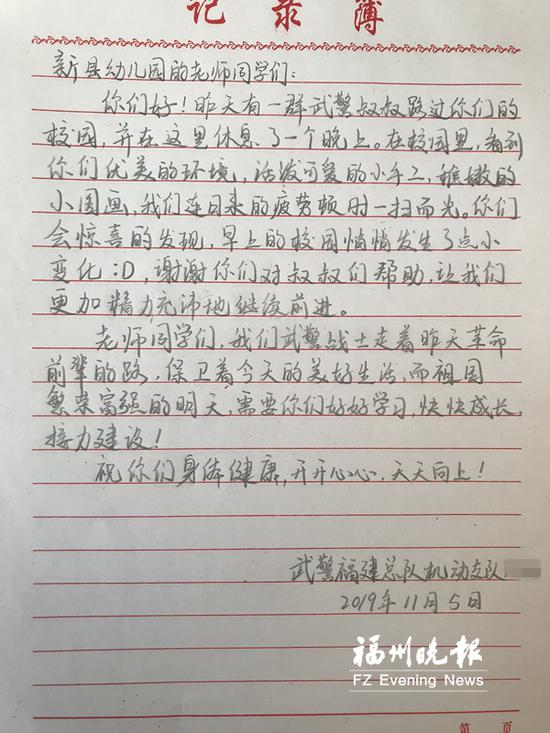 记 录 簿
新县幼儿园的老师同学们:
你们好！昨天有一群武警叔叔路过你们的
校园，并在这里休息了一个晚上。在校园里，看到
你们优美的环境，活泼可爱的小手工，稚嫩的
小图画，我们连日来的疲劳顿时一扫而光。你们
会惊喜的发现，早上的校园悄悄发生了点小
变化:D，谢谢你们对叔叔们帮助，让我们
更加精力充沛地继续前进。
老师同学们，我们武警战士走着昨天革命
前辈的路，保卫着今天的美好生活，而祖国
繁荣富强的明天，需要你们好好学习，快快成长，
接力建设！
祝你们身体健康，开开心心，天天向上！
武警福建总队机动支队
2019年11月5日
福州晚报
FZ Evening News
第 页